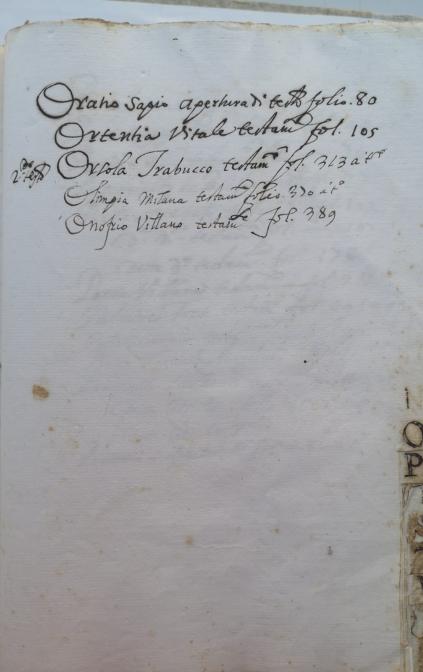 Oratio Sapio apertura di testo folio. 80
Ortentia Vitale testamto fol. 105
Orsola Trabucco testamto fol. 313 a tro
Olimpia Milana testamto folio 370 a to
Onofrio Villano testamto fol. 389
O
P